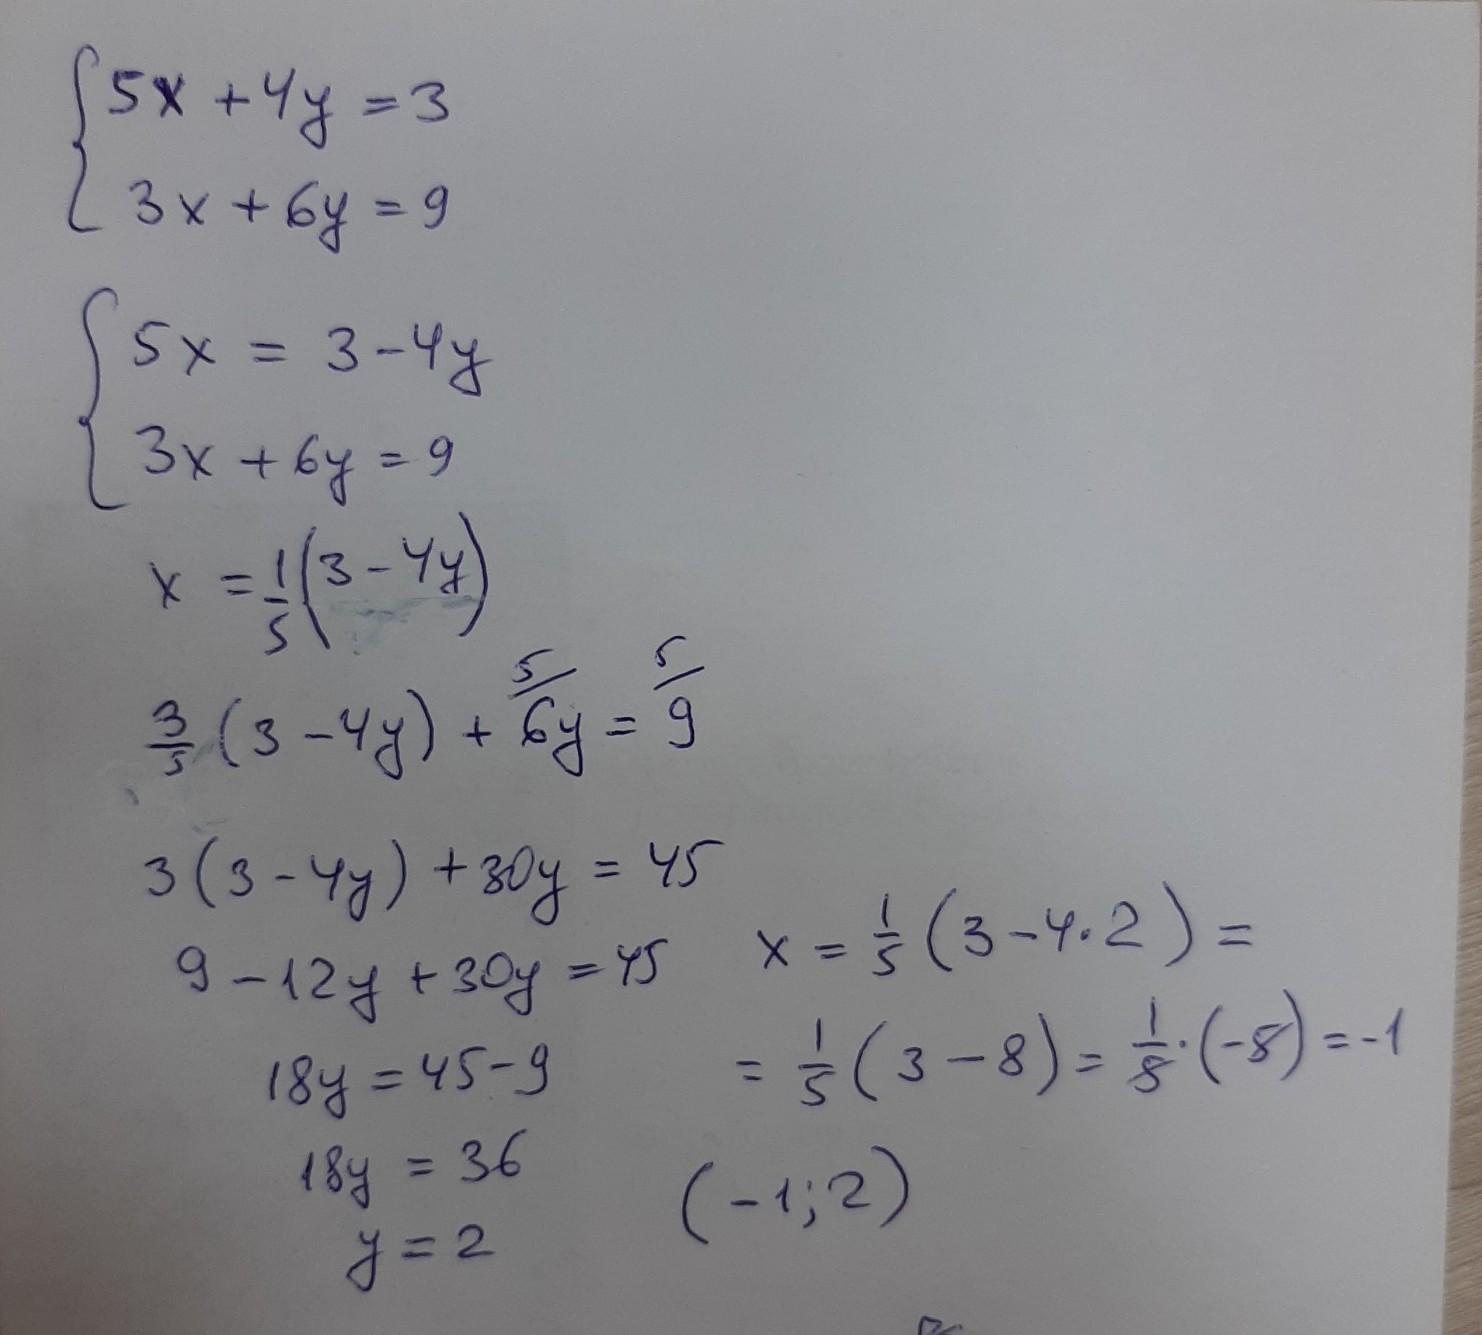 5x + 4y = 3
3x + 6y = 9
5x = 3 - 4y
3x + 6y = 9
x = 1/5 (3 - 4y)
5/ 5/
3/5 (3 - 4y) + 6y = 9
3(3 - 4y) + 30y = 45
9 - 12y + 30y = 45
18y = 45 - 9
18y = 36
y = 2
x = 1/5 (3 - 4·2) =
= 1/5 (3 - 8) = 1/5 · (-5) = -1
(-1; 2)